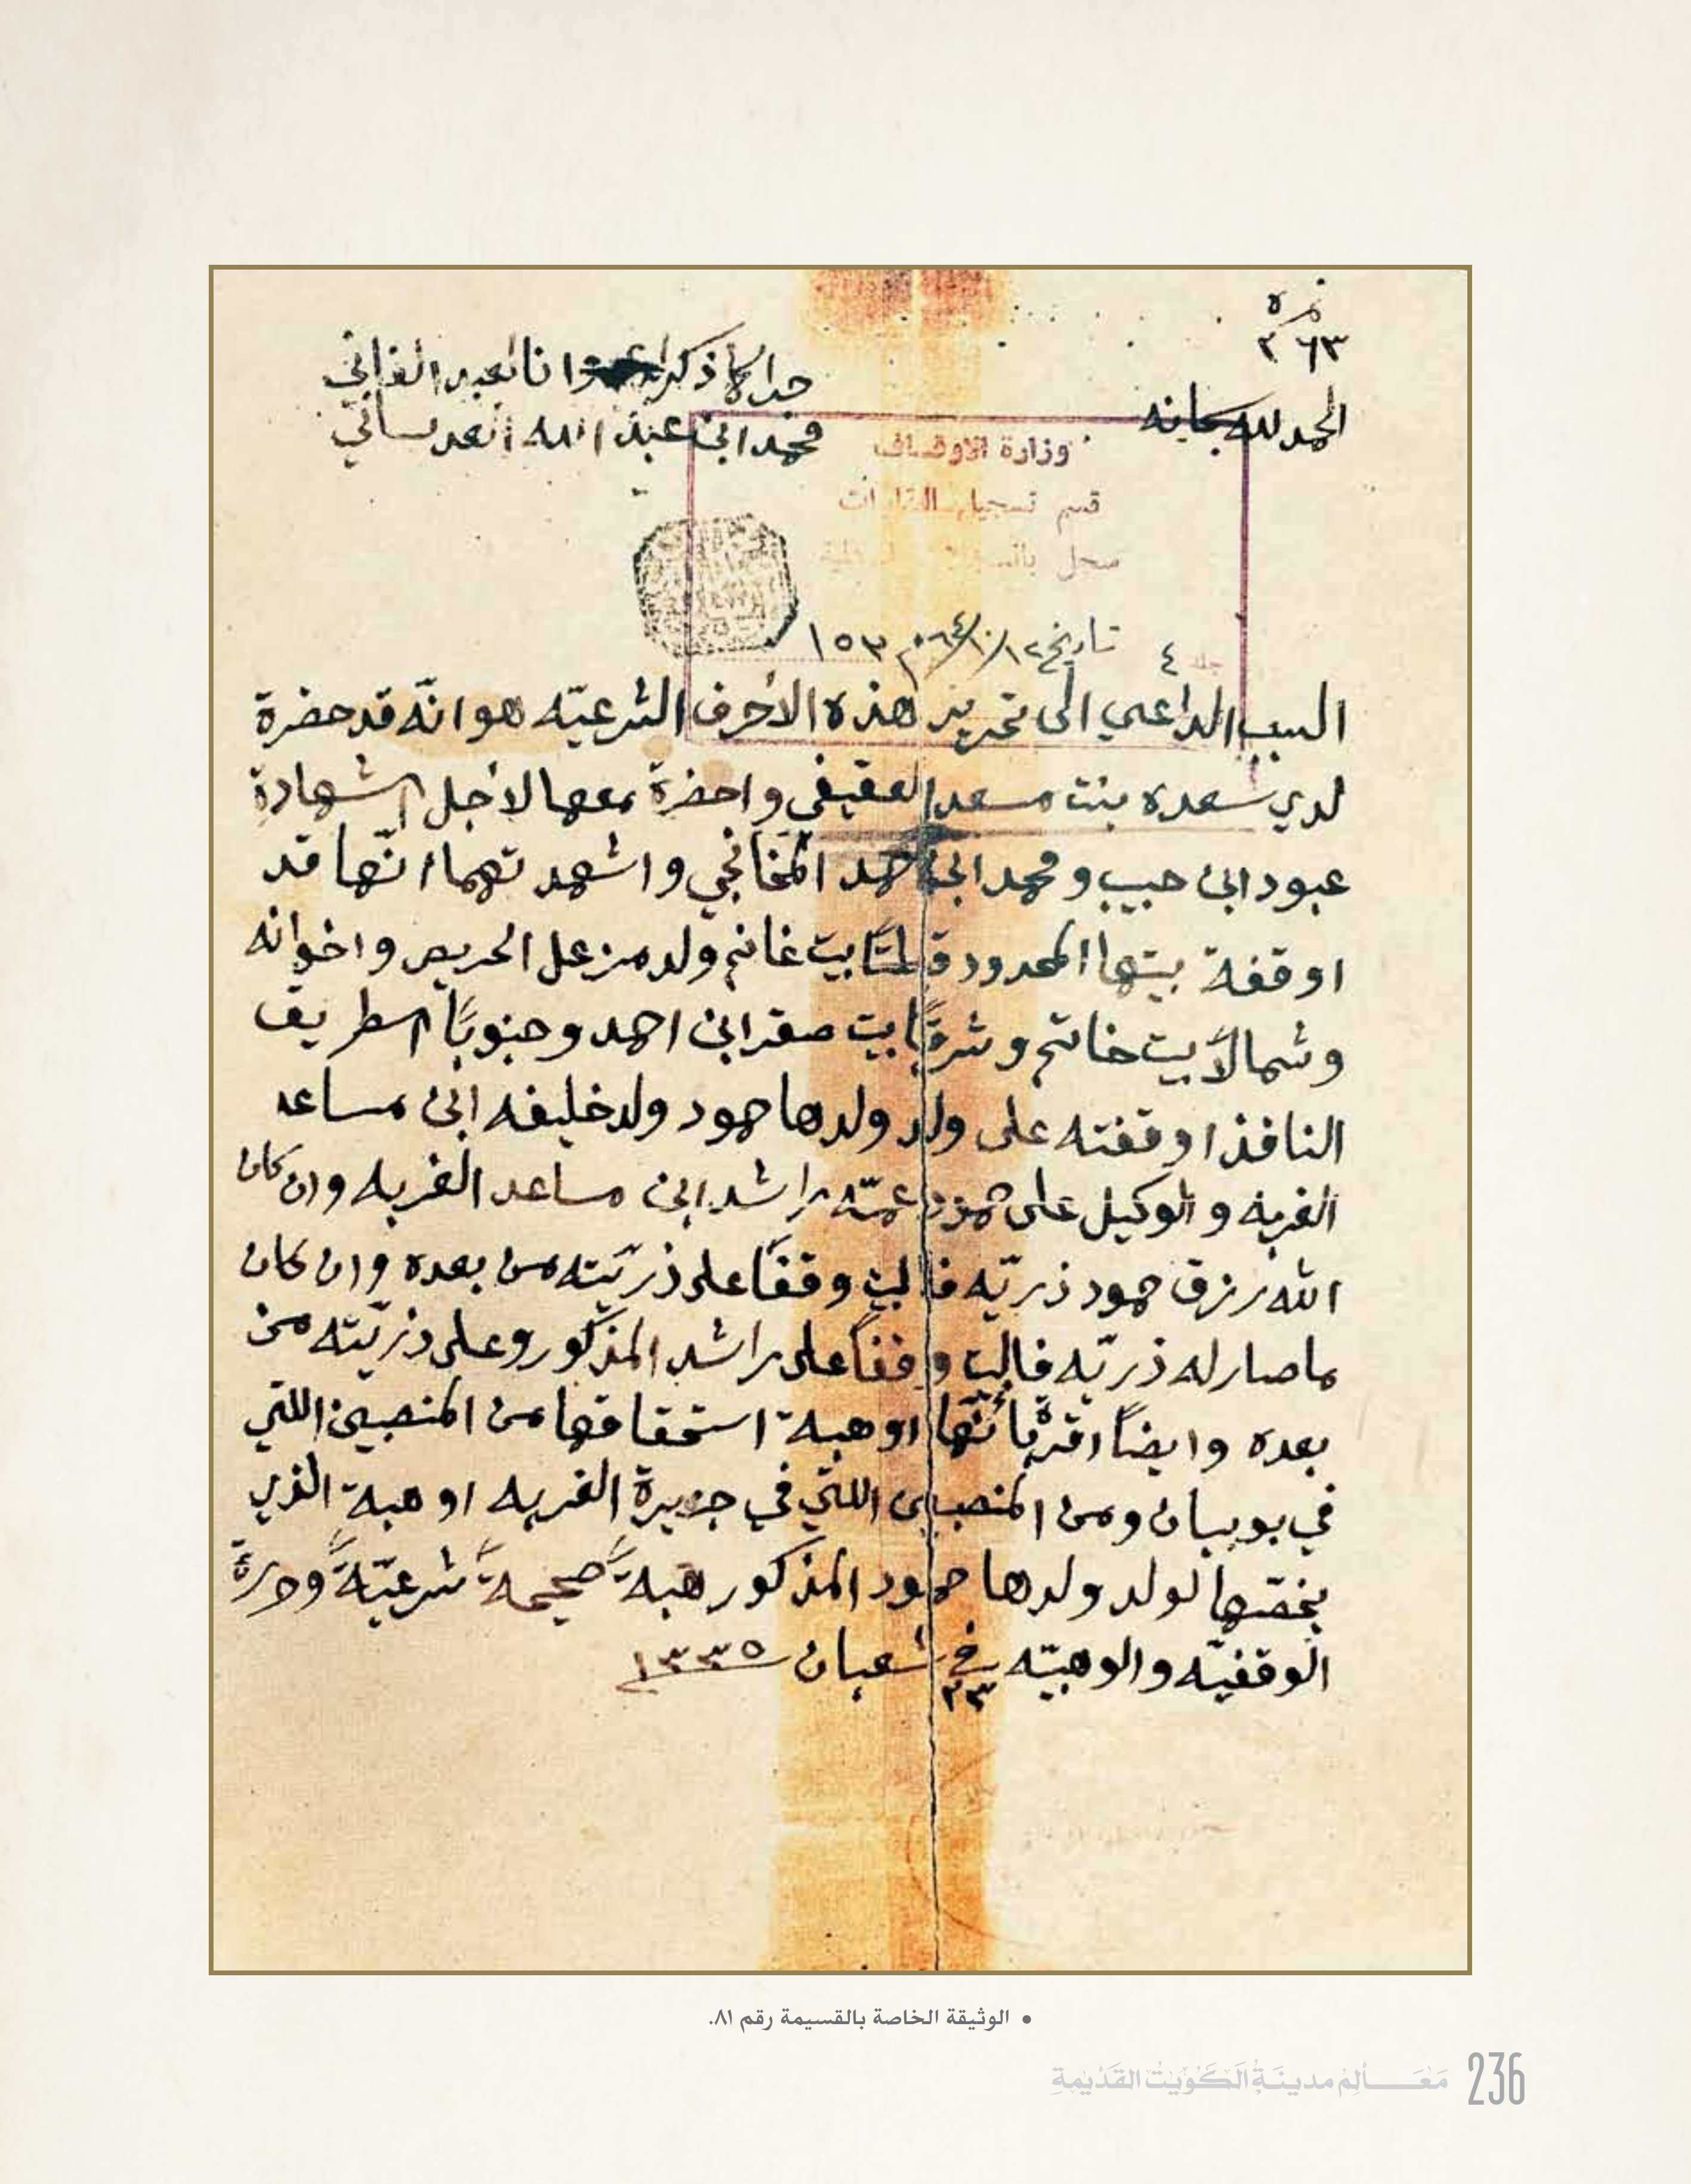 نمرة
٣٦٣
الحمد لله سبحانه
جرا كما ذكر وانا العبد الفاني
محمد ابن عبد الله العدساني
وزارة الاوقاف
قسم تسجيل العقارات
سجل
جلد ٤ تاريخ ١٢/١٠/٦٤م ١٥٣
السبب الداعي الى تحرير هذه الاحرف الشرعيّه هو انّه قد حضرة
لدي سعده بنت مسعد العقيفي واحضرة معها لاجل الشهادة
عبود ابن حبيب ومحمد ابن احمد المخانجي واشهدتهما انّها قد
اوقفة بيتها المحدود قبلتًا بيت غانم ولد مزعل الحريص واخوانه
وشمالاً بيت خاتم وشرقًا بيت صقر ابن احمد وجنوبًا اسطريق
النافذ اوقفته على ولد ولدها حمود ولد خليفه ابن مساعد
الغربه والوكيل على حمود عمّه راشد ابن مساعد الغربه وان كان
الله رزق حمود ذريّه فالبيت وقفًا على ذريّته من بعده وان كان
ما صار له ذريّه فالبيت وقفًا على راشد المذكور وعلى ذريّته من
بعده وايضًا اقرّة بأنّها اوهبة استحقاقها من المنصبين اللتي
في بوبيان ومن المنصب اللتي في جزيرة الغربه اوهبة الذي
يخصّها لولد ولدها حمود المذكور هبةً صحيحةً شرعيّةً وحررةً
الوقفيّه والوهبيّه في ٢٣ شعبان ١٣٣٥
• الوثيقة الخاصة بالقسيمة رقم ٨١.
مَعَالم مدينَة الكوَيت القَديمَة 236